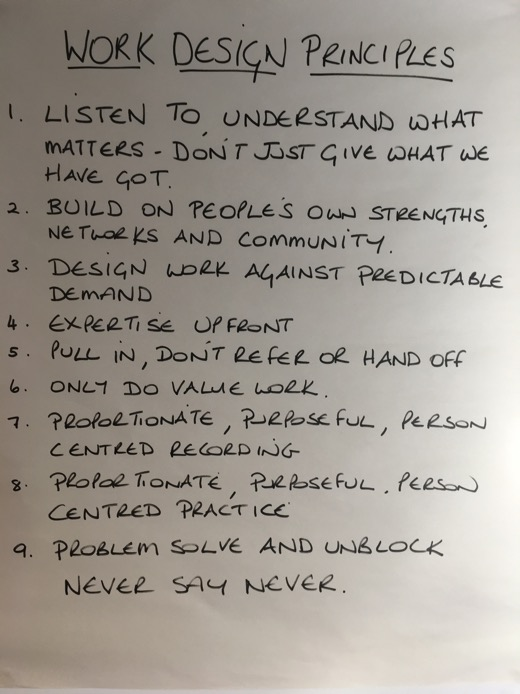 WORK DESIGN PRINCIPLES
1. LISTEN TO, UNDERSTAND WHAT
MATTERS - DON'T JUST GIVE WHAT WE
HAVE GOT.
2. BUILD ON PEOPLE'S OWN STRENGTHS,
NETWORKS AND COMMUNITY.
3. DESIGN WORK AGAINST PREDICTABLE
DEMAND
4. EXPERTISE UPFRONT
5. PULL IN, DON'T REFER OR HAND OFF
6. ONLY DO VALUE WORK.
7. PROPORTIONATE, PURPOSEFUL, PERSON
CENTRED RECORDING
8. PROPORTIONATE, PURPOSEFUL, PERSON
CENTRED PRACTICE
9. PROBLEM SOLVE AND UNBLOCK
NEVER SAY NEVER.